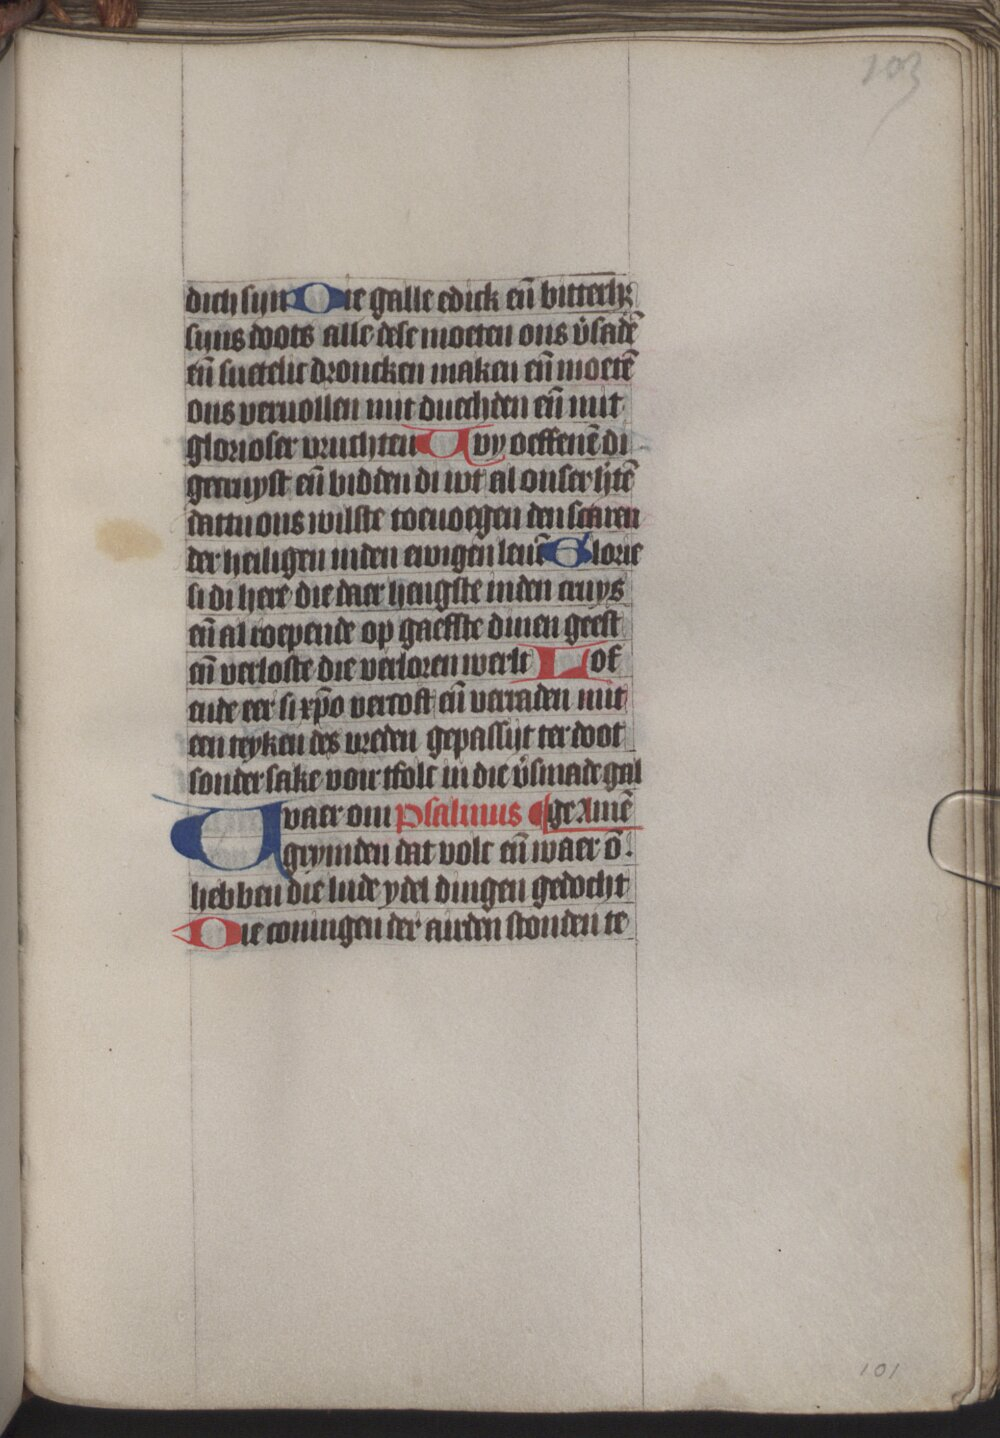 103
dich sijn Die galle edick eñ bitterh̄
sijns doots alle dese moeten ons v̄sadē
eñ suetelic droncken maken eñ moetē
ons veruollen mit duechden eñ mit
glorioser vruchten Wy oeffenē di
gecruyst eñ bidden di wt al onser h̄tē
dattu ons wilste toeuoegen den scaren
der heiligen inden ewigen leuē Glorie
si di here die daer hengste inden cruys
eñ al roepende op gaefste dinen geest
eñ verloste die verloren werlt Lof
ende eer si xp̄o vercoft eñ verraden mit
een teyken des vreden gepassijt ter doot
sonder sake voir tfolc in die v̄smade gal
Waer om Psalmus ge Amē
grynden dat volc eñ waer ō.
hebben die lude ydel dingen gedocht
Die coningen der airden stonden te
101